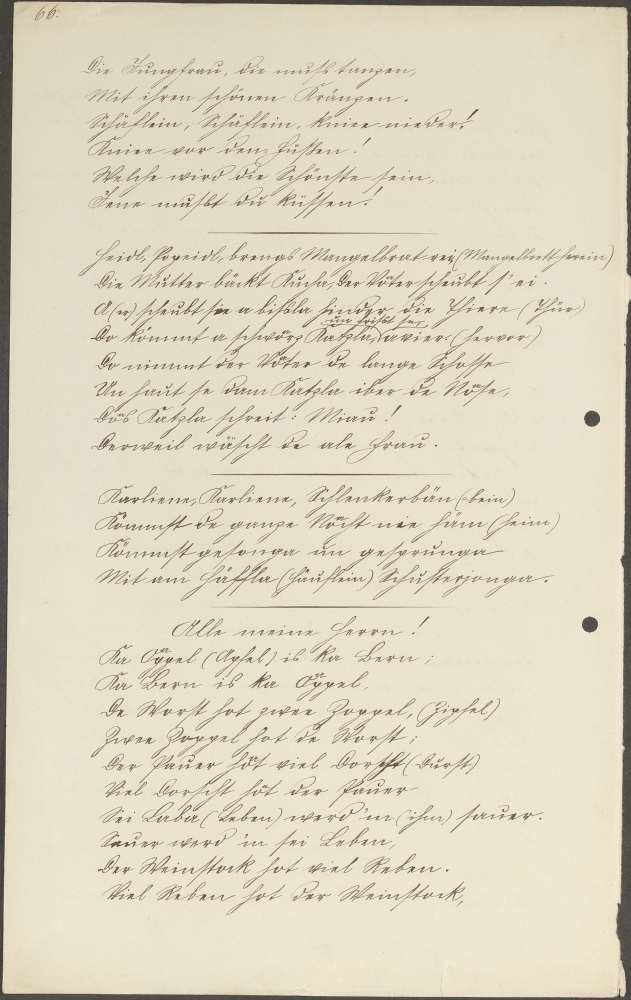 66.
Die Jungfrau, die muß tanzen,
Mit ihren schönen Kränzen.
Schäflein, Schäflein, kniee nieder!
Kniee vor den Füßen!
Welche wird die Schönste sein,
Jene mußt du küssen!
Heidl, Popeidl, brengs Mangelbrat rei (Mangelbrett herein)
Die Mutter bäckt Kucha, der Voter scheubt s' ei.
A (er) scheubt se a bißla hinder die Thiere (Thür)
un frißt se,
Do kömmt a schwörz Katzla, avier (hervor)
Do nimmt der Voter de lange Schosse
Un haut se dam Katzla iber de Nöse,
Dös Katzla schreit: Miau!
Derweil wäscht de ale Frau.
Karliene, Karliene, Schlenkerbän (-bein)
Kömmst de ganze Nöcht nie häm (heim)
Kömmst gesonga un gesprunga
Mit am Häffla (Häuflein) Schusterjonga.
Alle meine Herrn!
Ka Öppel (Apfel) is ka Bern;
Ka Bern is ka Öppel,
De Worst hot zwee Zoppel, (Zipfel)
Zwee Zoppel hot de Worst;
Der Pauer höt viel Dorscht (Durst)
Viel Dorscht höt der Pauer
Sei Laba (Leben) werd 'm (ihm) sauer.
Sauer werd 'm sei Leben,
Der Weinstock hot viel Reben.
Viel Reben hot der Weinstock,